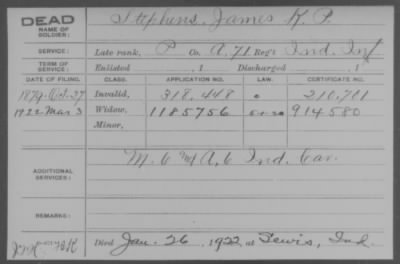 DEAD
NAME OF SOLDIER:
Stephens, James K. P.
SERVICE:
Late rank, P Co. A, 71 Reg't Ind. Inf
TERM OF SERVICE:
Enlisted , 1 Discharged , 1
DATE OF FILING. CLASS. APPLICATION NO. LAW. CERTIFICATE NO.
1879-Oct-27 Invalid, 318,448 210,701
1922 Mar 3 Widow, 1185756 914580
Minor,
ADDITIONAL SERVICES:
M. 6 & A, 6 Ind. Cav.
REMARKS:
Died Jan. 26, 1922 at Lewis, Ind.